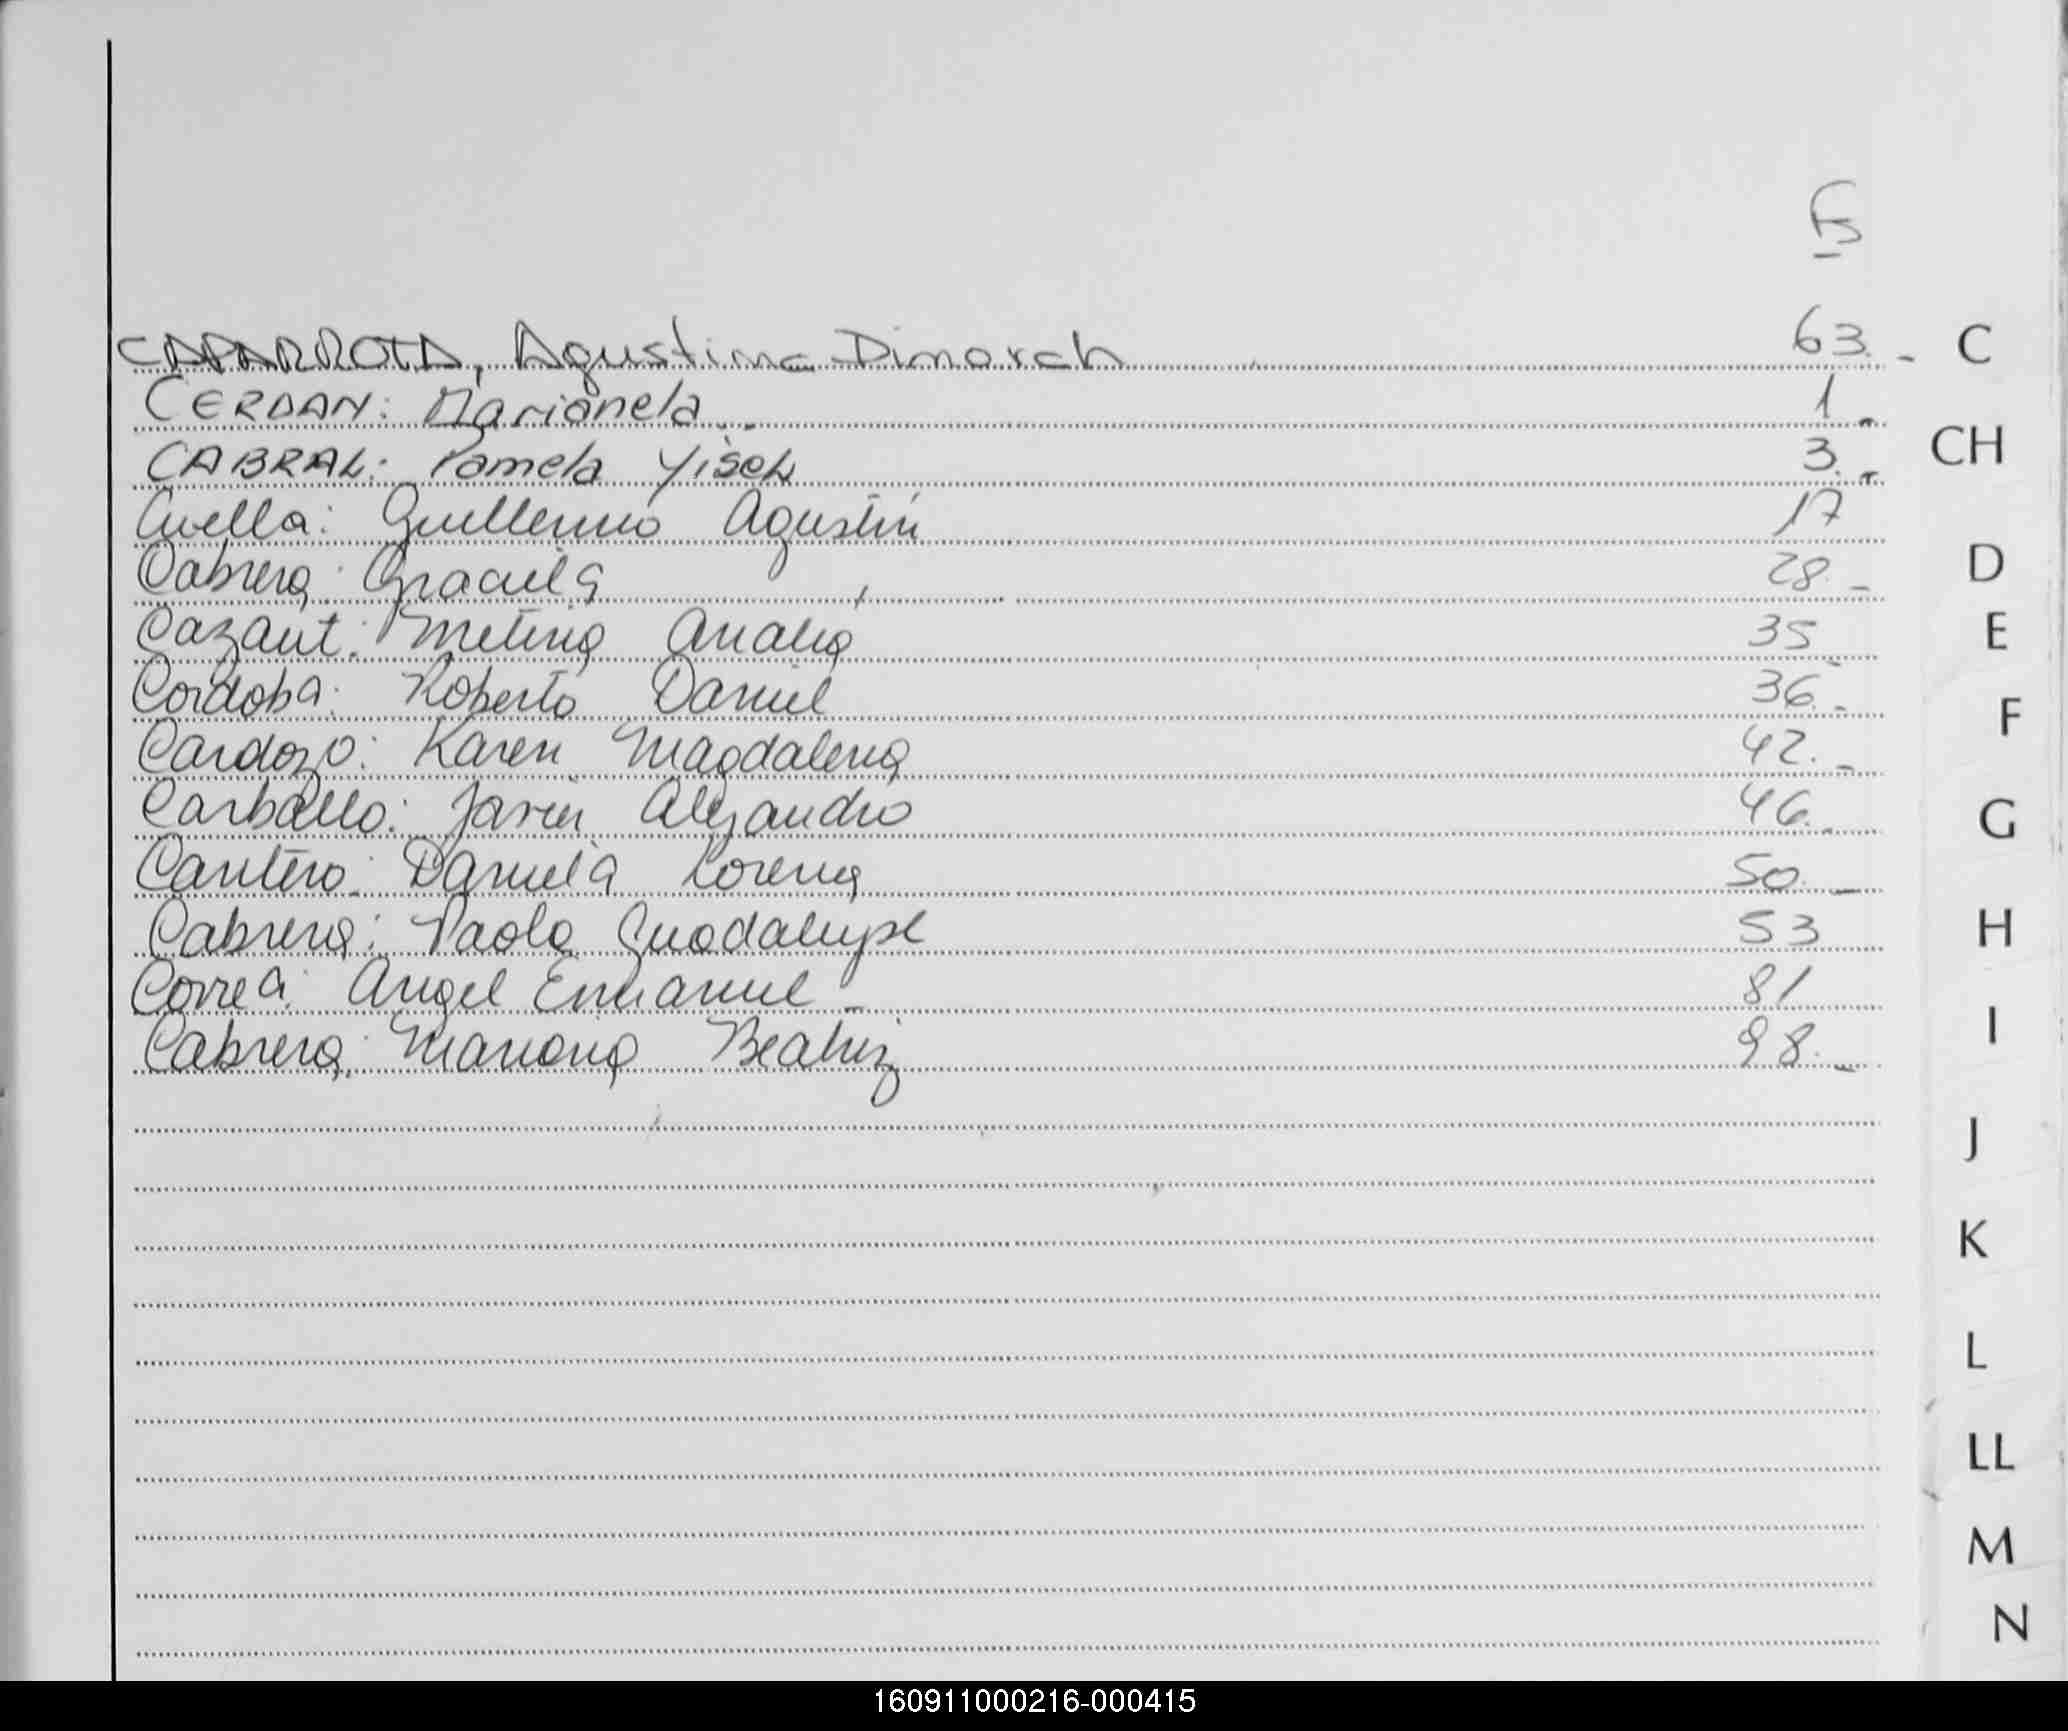 Fs
CAPARROTA, Agustina Dimorah 63.- C
CERDAN: Marianela 1.-
CABRAL: Pamela Yisel 3.- CH
Cuella: Guillermo Agustín 17
Cabrera: Graciela 28.- D
Cazaut: Melina Analia 35- E
Cordoba: Roberto Daniel 36.-
Cardozo: Karen Magdalena 42.- F
Carballo: Javier Alejandro 46.- G
Cantero: Daniela Lorena 50.-
Cabrera: Paola Guadalupe 53 H
Correa: Angel Emanuel - 81
Cabrera: Mariana Beatriz 98.- I
J
K
L
LL
M
N
160911000216-000415